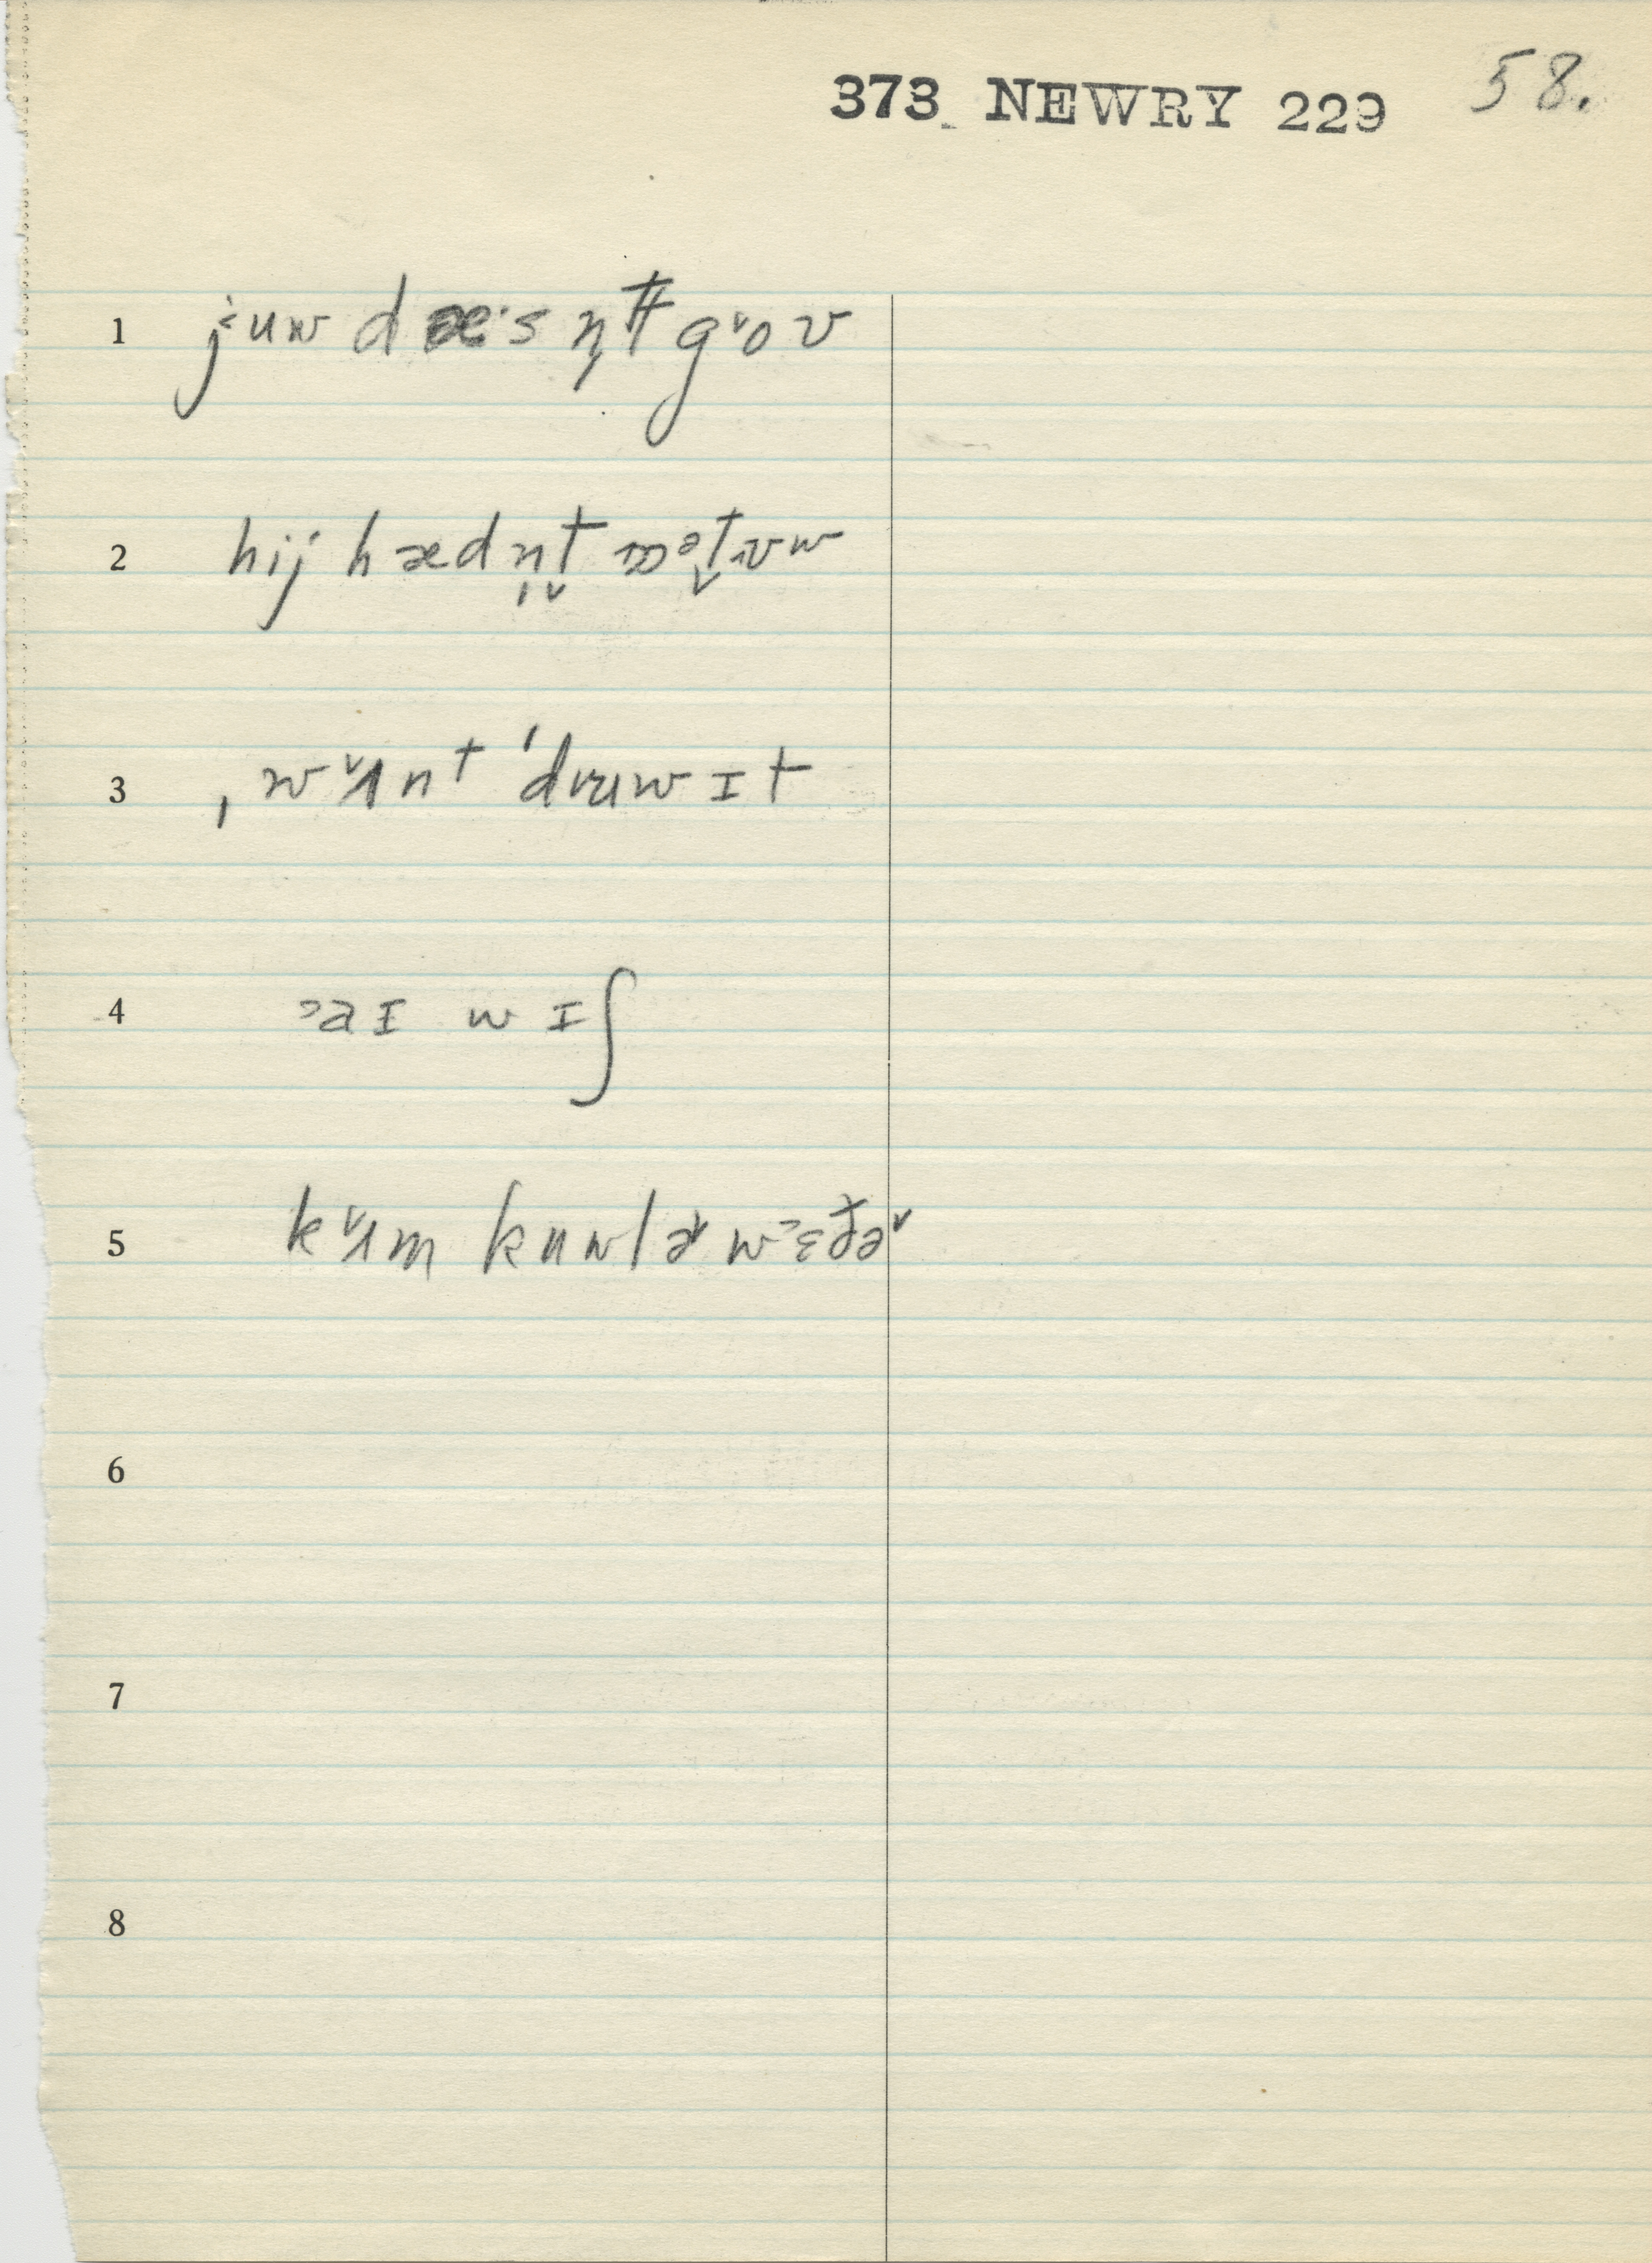 373 NEWRY 229 58.
1 j˂uw dæ·s n̩t̬ gˇoʊ
2 hij hædn̩t̬ ɒəˀt̬ʊw
3 ˌwˇʌnt ˈdruwɪt
4 ˃aɪ wɪʃ
5 kˇʌm kuwlɚ w˃ɛðɚ
6
7
8